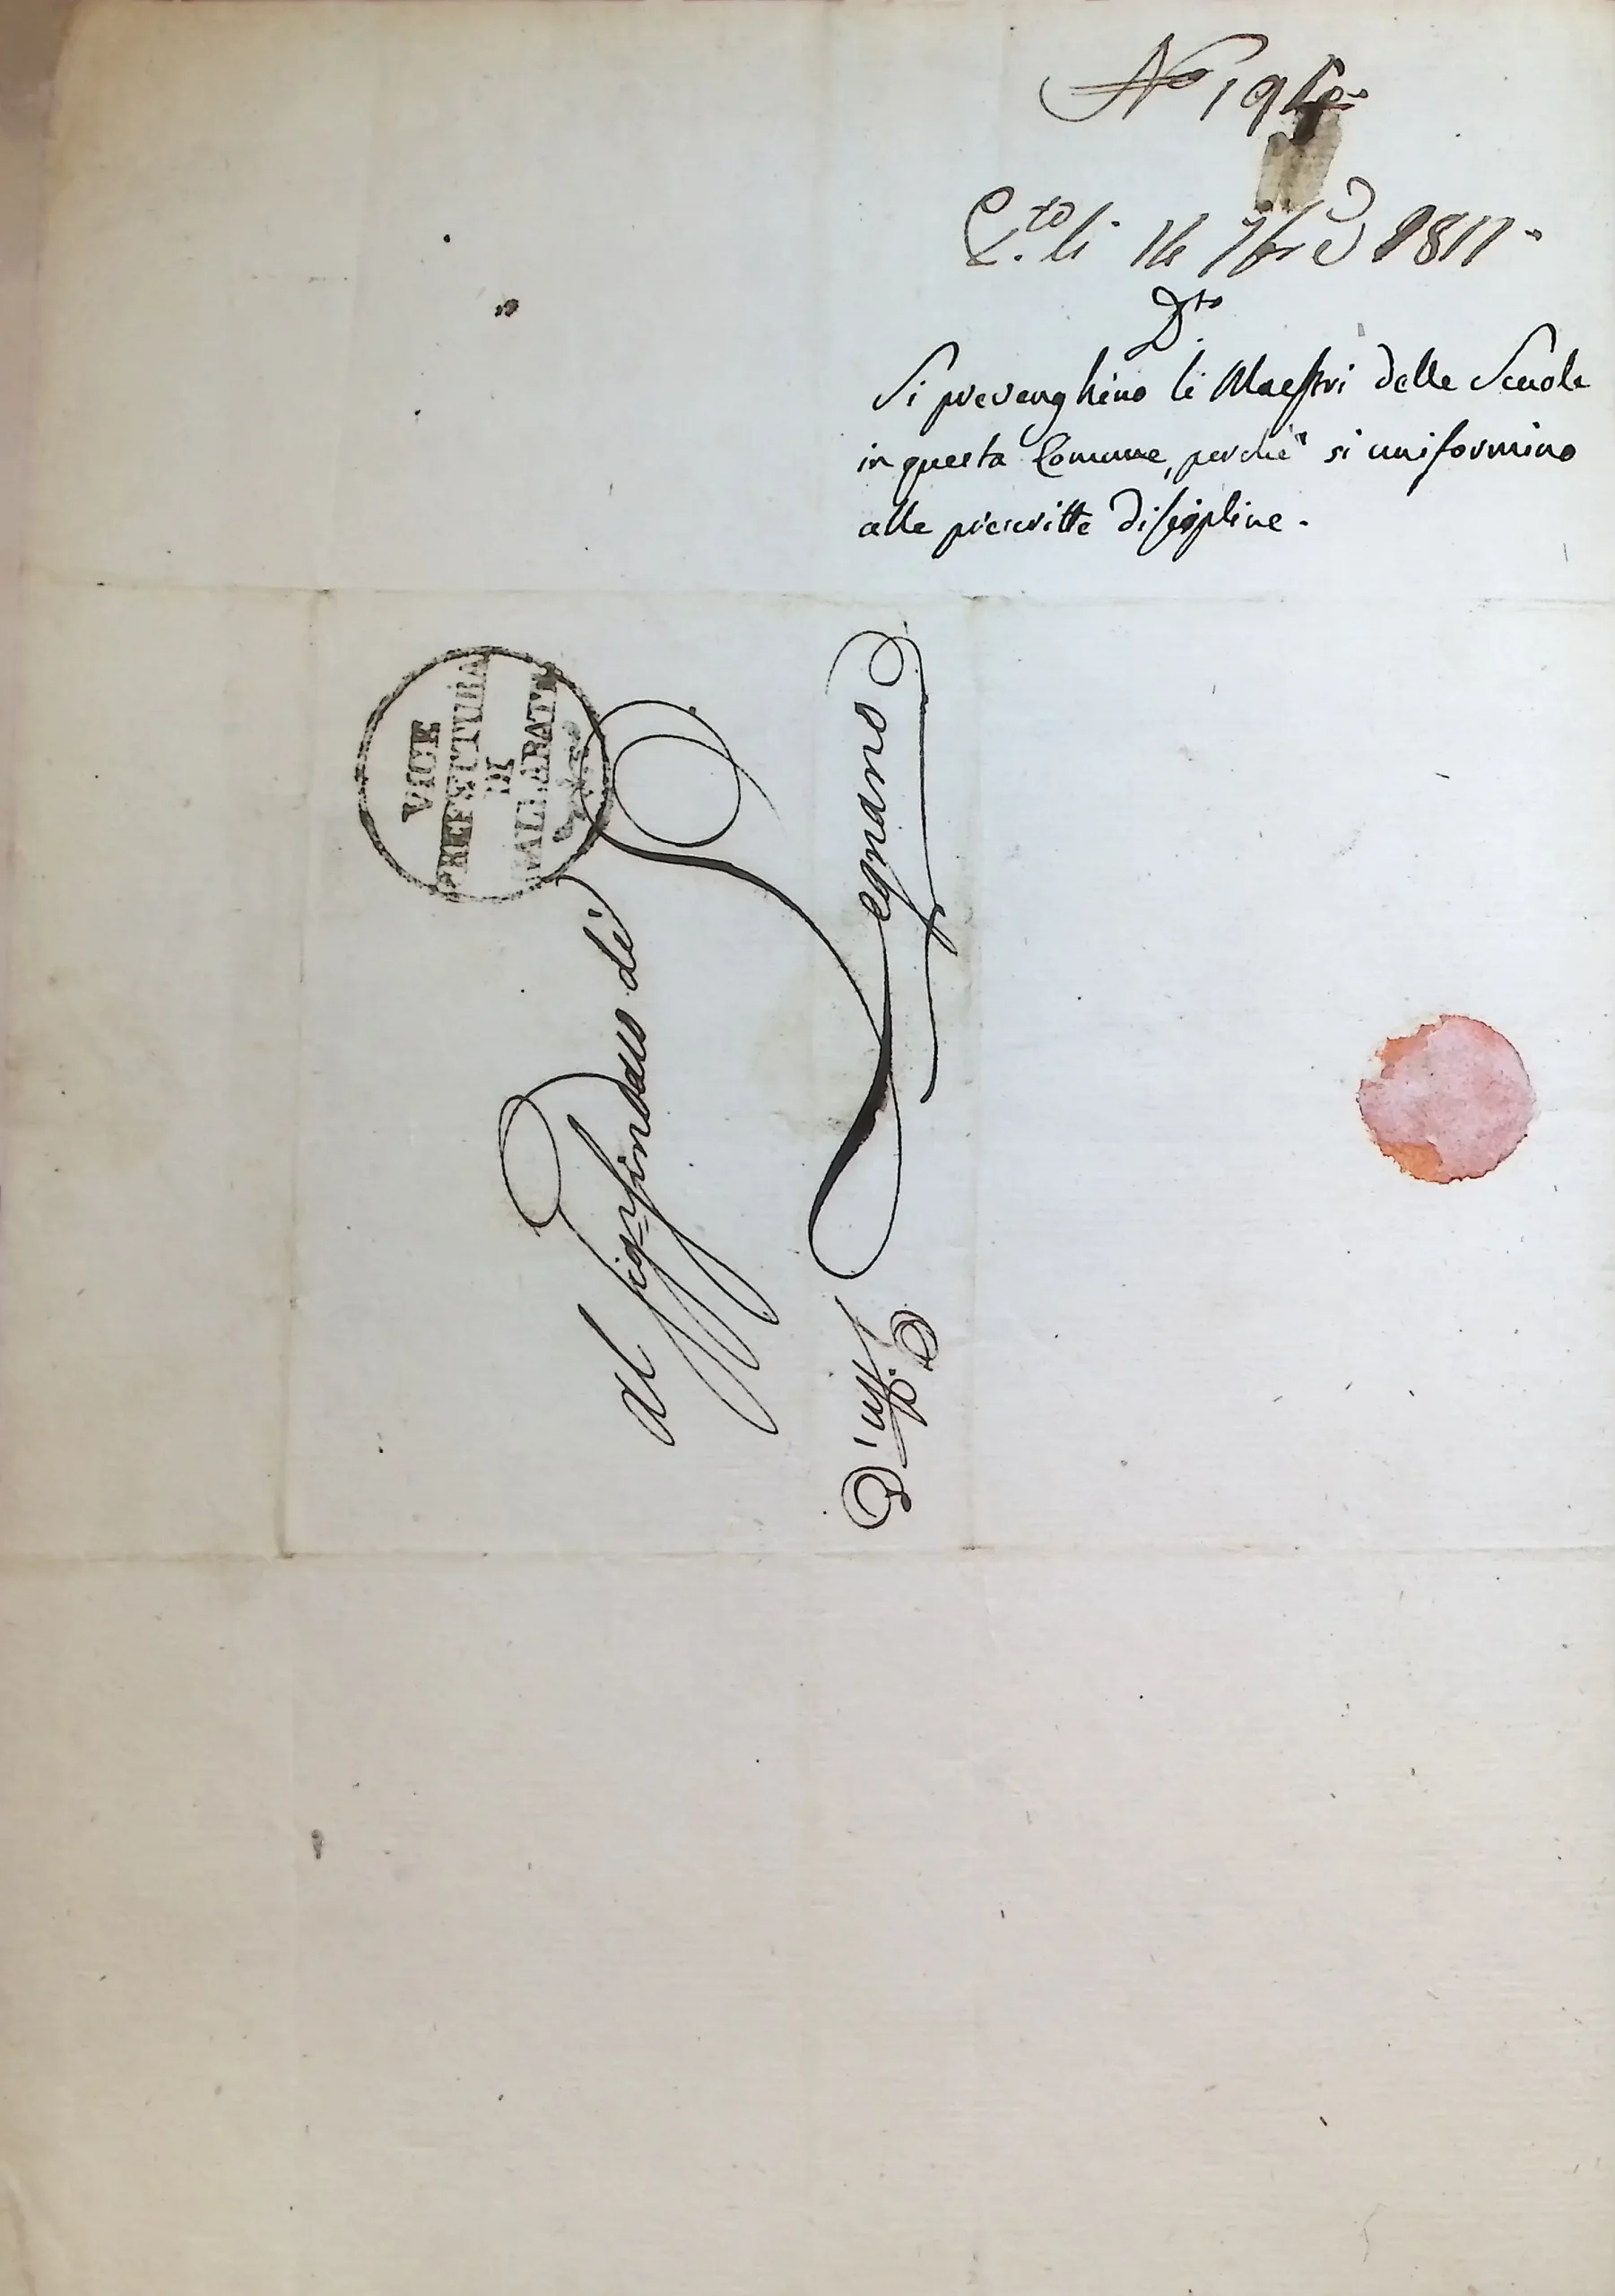 N.o 19
P.to li 16 7bre 1811.
D.to
Si prevenghino li Maestri delle Scuole
in questa Comune, perchè si uniformino
alle prescritte discipline.
VICE
PREFETTURA
DI
GALLARATE
Al sig.r Sindaco di
D'uff.o Legnano